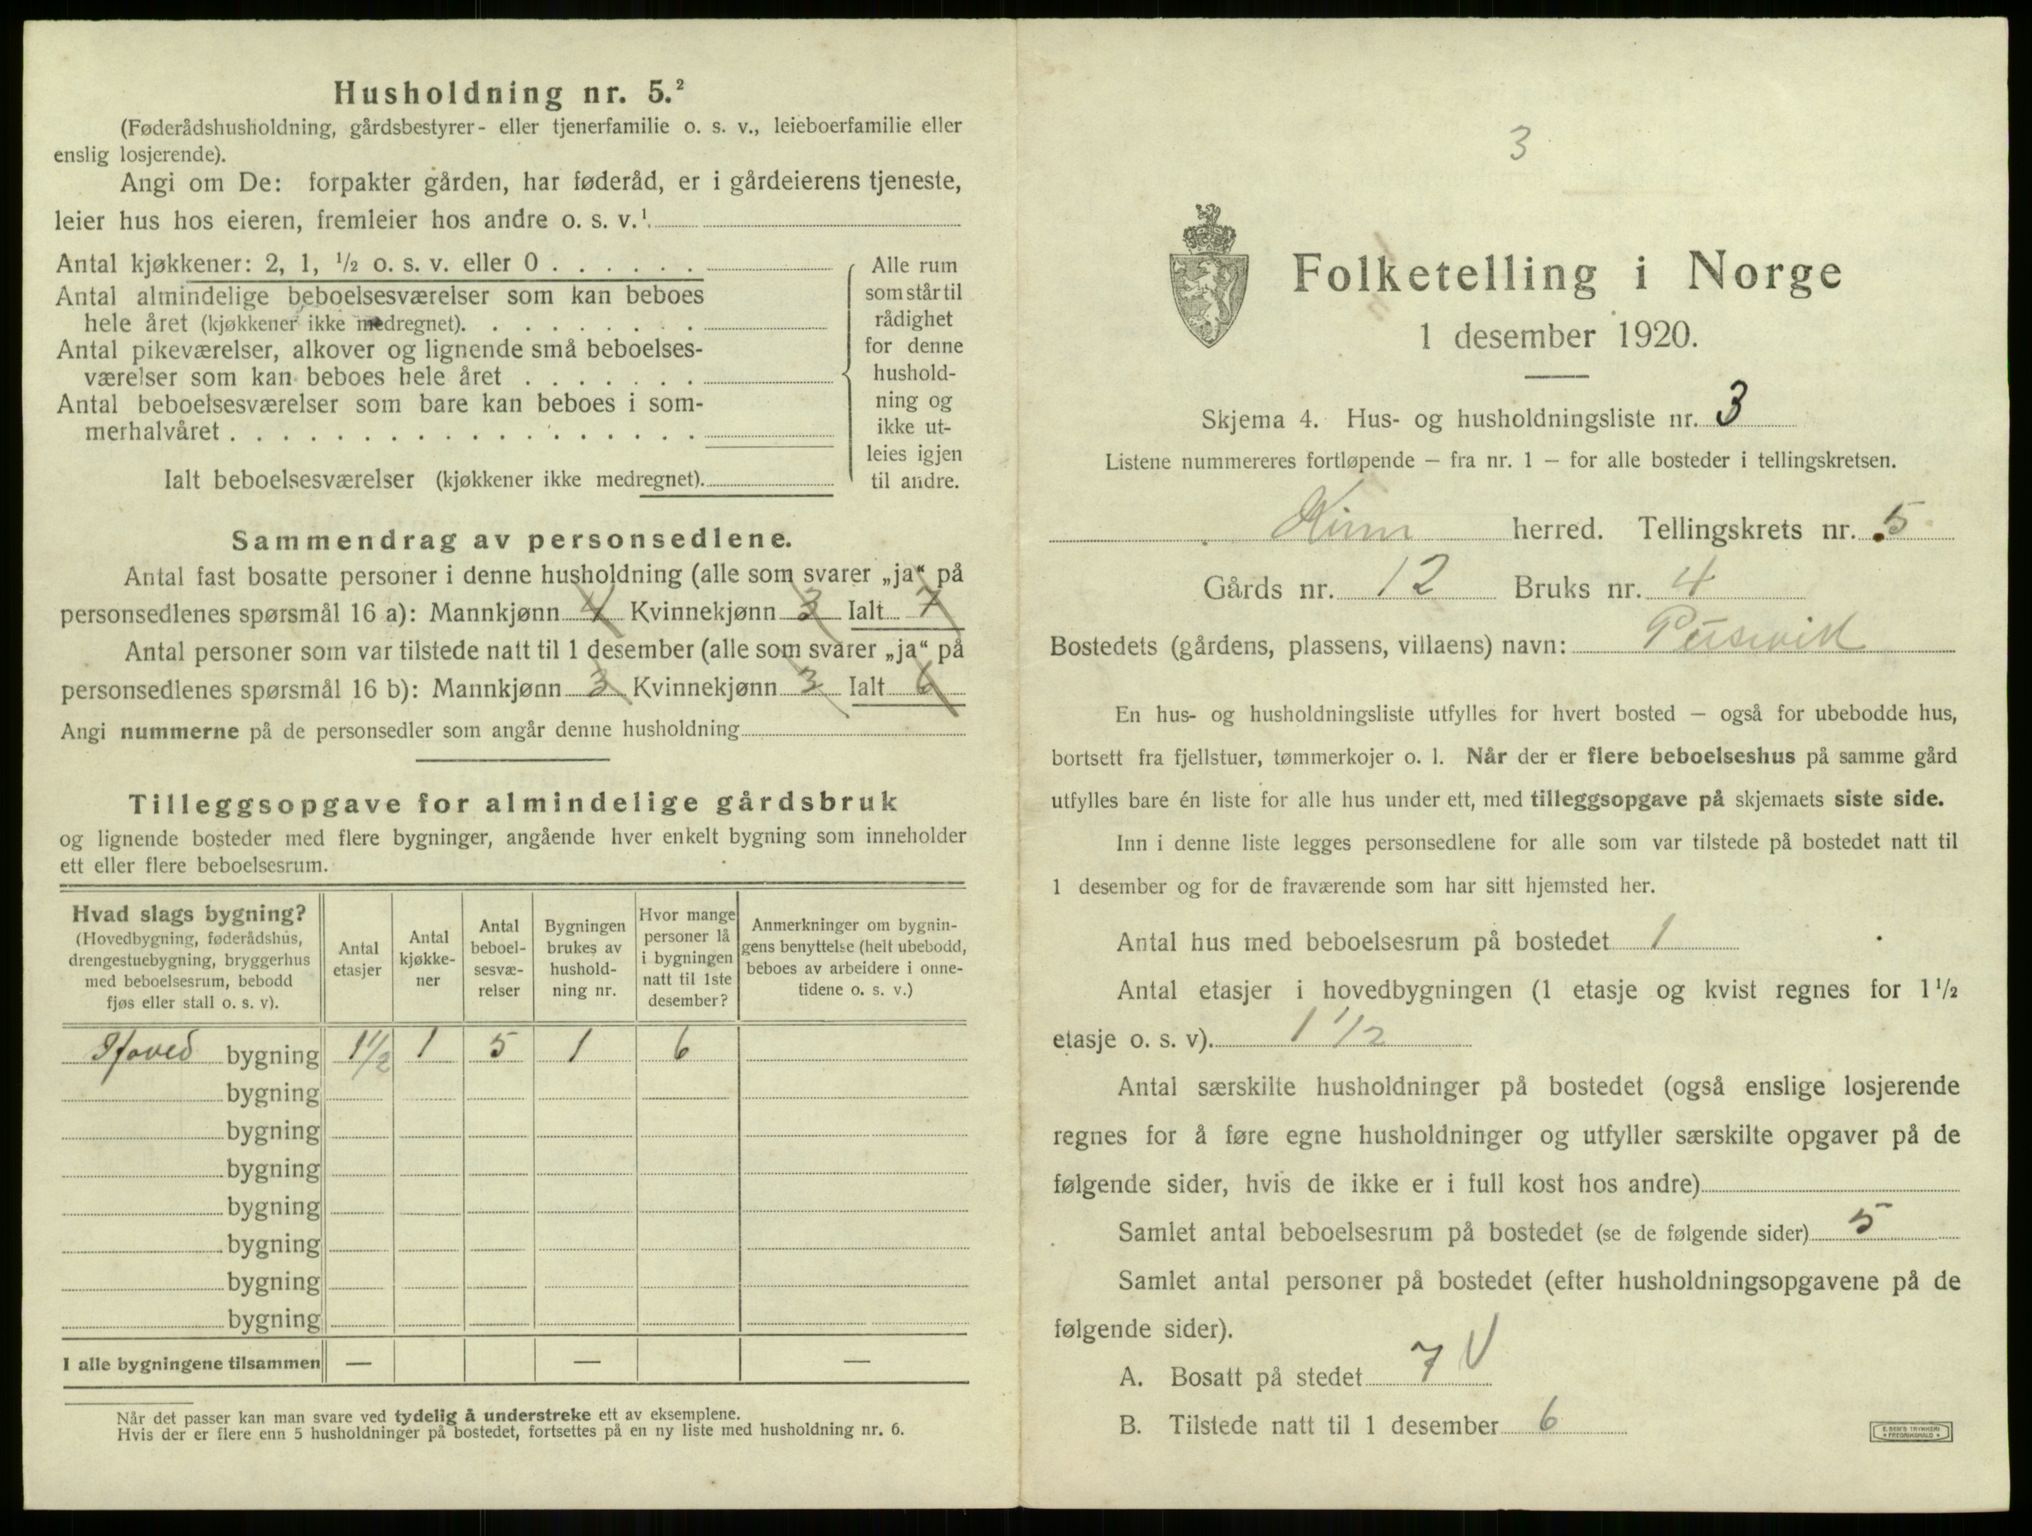 Husholdning nr. 5.²
(Føderådshusholdning, gårdsbestyrer- eller tjenerfamilie o. s. v., leieboerfamilie eller
enslig losjerende).
Angi om De: forpakter gården, har føderåd, er i gårdeierens tjeneste,
leier hus hos eieren, fremleier hos andre o. s. v.¹
Antal kjøkkener: 2, 1, ½ o. s. v. eller 0 . . . . . .
Antal almindelige beboelsesværelser som kan beboes
hele året (kjøkkener ikke medregnet). . . . . . . . .
Antal pikeværelser, alkover og lignende små beboelses-
værelser som kan beboes hele året . . . . . . .
Antal beboelsesværelser som bare kan beboes i som-
merhalvåret . . . . . . . . . . . . . . . . . .
Ialt beboelsesværelser (kjøkkener ikke medregnet).
Alle rum
som står til
rådighet
for denne
hushold-
ning og
ikke ut-
leies igjen
til andre.
Sammendrag av personsedlene.
Antal fast bosatte personer i denne husholdning (alle som svarer „ja“ på
personsedlenes spørsmål 16 a): Mannkjønn 4 Kvinnekjønn 3 Ialt 7
Antal personer som var tilstede natt til 1 desember (alle som svarer „ja“ på
personsedlenes spørsmål 16 b): Mannkjønn 3 Kvinnekjønn 3 Ialt 6
Angi nummerne på de personsedler som angår denne husholdning
Tilleggsopgave for almindelige gårdsbruk
og lignende bosteder med flere bygninger, angående hver enkelt bygning som inneholder
ett eller flere beboelsesrum.
Hvad slags bygning?
(Hovedbygning, føderådshus,
drengestuebygning, bryggerhus
med beboelsesrum, bebodd
fjøs eller stall o. s. v).
Antal
etasjer
Antal
kjøkke-
ner
Antal
beboel-
sesvæ-
relser
Bygningen
brukes av
hushold-
ning nr.
Hvor mange
personer lå
i bygningen
natt til 1ste
desember?
Anmerkninger om bygnin-
gens benyttelse (helt ubebodd,
beboes av arbeidere i onne-
tidene o. s. v.)
Hoved bygning 1½ 1 5 1 6
bygning
bygning
bygning
bygning
bygning
bygning
bygning
I alle bygningene tilsammen — — —
Når det passer kan man svare ved tydelig å understreke ett av eksemplene.
Hvis der er flere enn 5 husholdninger på bostedet, fortsettes på en ny liste med husholdning nr. 6.
3
Folketelling i Norge
1 desember 1920.
Skjema 4. Hus- og husholdningsliste nr. 3
Listene nummereres fortløpende – fra nr. 1 – for alle bosteder i tellingskretsen.
Kinn herred. Tellingskrets nr. 5
Gårds nr. 12 Bruks nr. 4
Bostedets (gårdens, plassens, villaens) navn:
En hus- og husholdningsliste utfylles for hvert bosted – også for ubebodde hus,
bortsett fra fjellstuer, tømmerkojer o. l. Når der er flere beboelseshus på samme gård
utfylles bare én liste for alle hus under ett, med tilleggsopgave på skjemaets siste side.
Inn i denne liste legges personsedlene for alle som var tilstede på bostedet natt til
1 desember og for de fraværende som har sitt hjemsted her.
Antal hus med beboelsesrum på bostedet 1
Antal etasjer i hovedbygningen (1 etasje og kvist regnes for 1½
etasje o. s. v). 1½
Antal særskilte husholdninger på bostedet (også enslige losjerende
regnes for å føre egne husholdninger og utfyller særskilte opgaver på de
følgende sider, hvis de ikke er i full kost hos andre)
Samlet antal beboelsesrum på bostedet (se de følgende sider) 5
Samlet antal personer på bostedet (efter husholdningsopgavene på de
følgende sider).
A. Bosatt på stedet 7 V
B. Tilstede natt til 1 desember 6